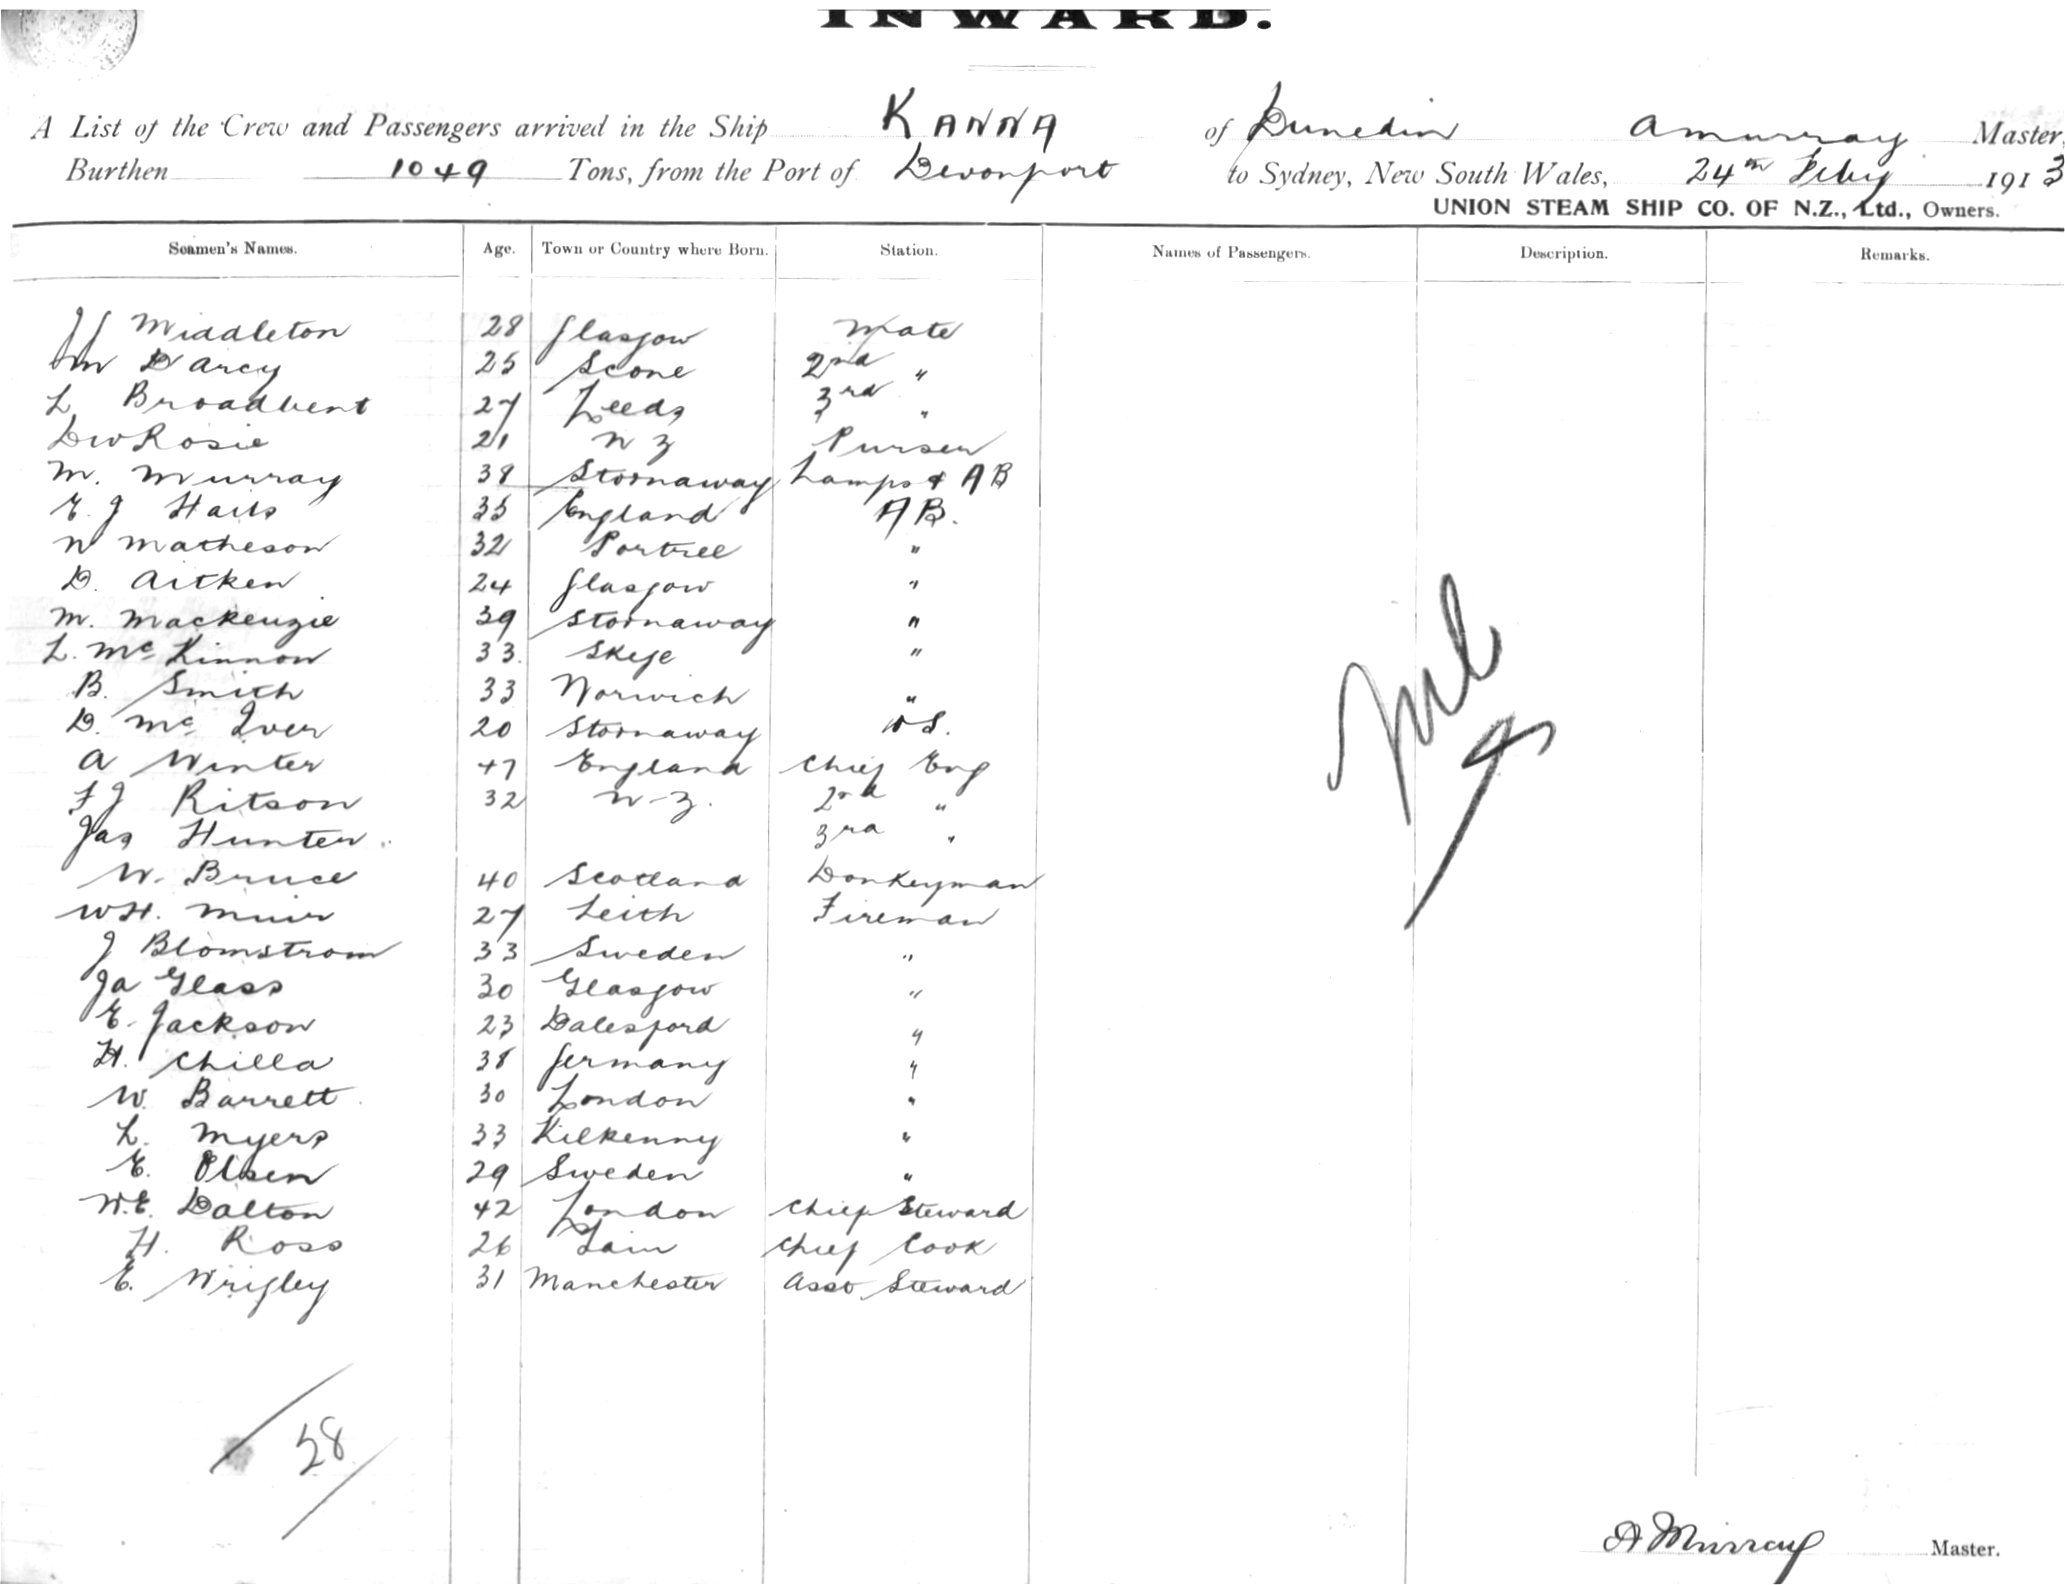 INWARD.
A List of the Crew and Passengers arrived in the Ship KANNA of Dunedin A Murray Master,
Burthen 1049 Tons, from the Port of Devonport to Sydney, New South Wales, 24th Feby 1913
UNION STEAM SHIP CO. OF N.Z., Ltd., Owners.
Seamen's Names. Age. Town or Country where Born. Station. Names of Passengers. Description. Remarks.
JJ Middleton 28 Glasgow Mate
Wm D'Arcy 25 Scone 2nd "
L Broadbent 27 Leeds 3rd "
DW Rosie 21 N Z Purser
M. Murray 38 Stornaway Lamps & AB
E. J Hails 35 England AB.
N Matheson 32 Portree "
D. Aitken 24 Glasgow "
M. Mackenzie 39 Stornaway "
L. McKinnon 33. Skye "
B. Smith 33 Norwich "
D. McIver 20 Stornaway OS.
A Winter 47 England Chief Eng
FJ Ritson 32 N-Z. 2nd "
Jas Hunter. 3rd "
W. Bruce 40 Scotland Donkeyman
WH. Muir 27 Leith Fireman
J Blomstrom 33 Sweden "
Ja Glass 30 Glasgow "
E. Jackson 23 Dalesford "
H. Chilla 38 Germany "
W. Barrett 30 London "
L. Myers 33 Kilkenny "
E. Olsen 29 Sweden "
W.E. Dalton 42 London Chief Steward
H. Ross 26 Tain Chief Cook
E. Wrigley 31 Manchester Asst Steward
Nil
28
A Murray Master.